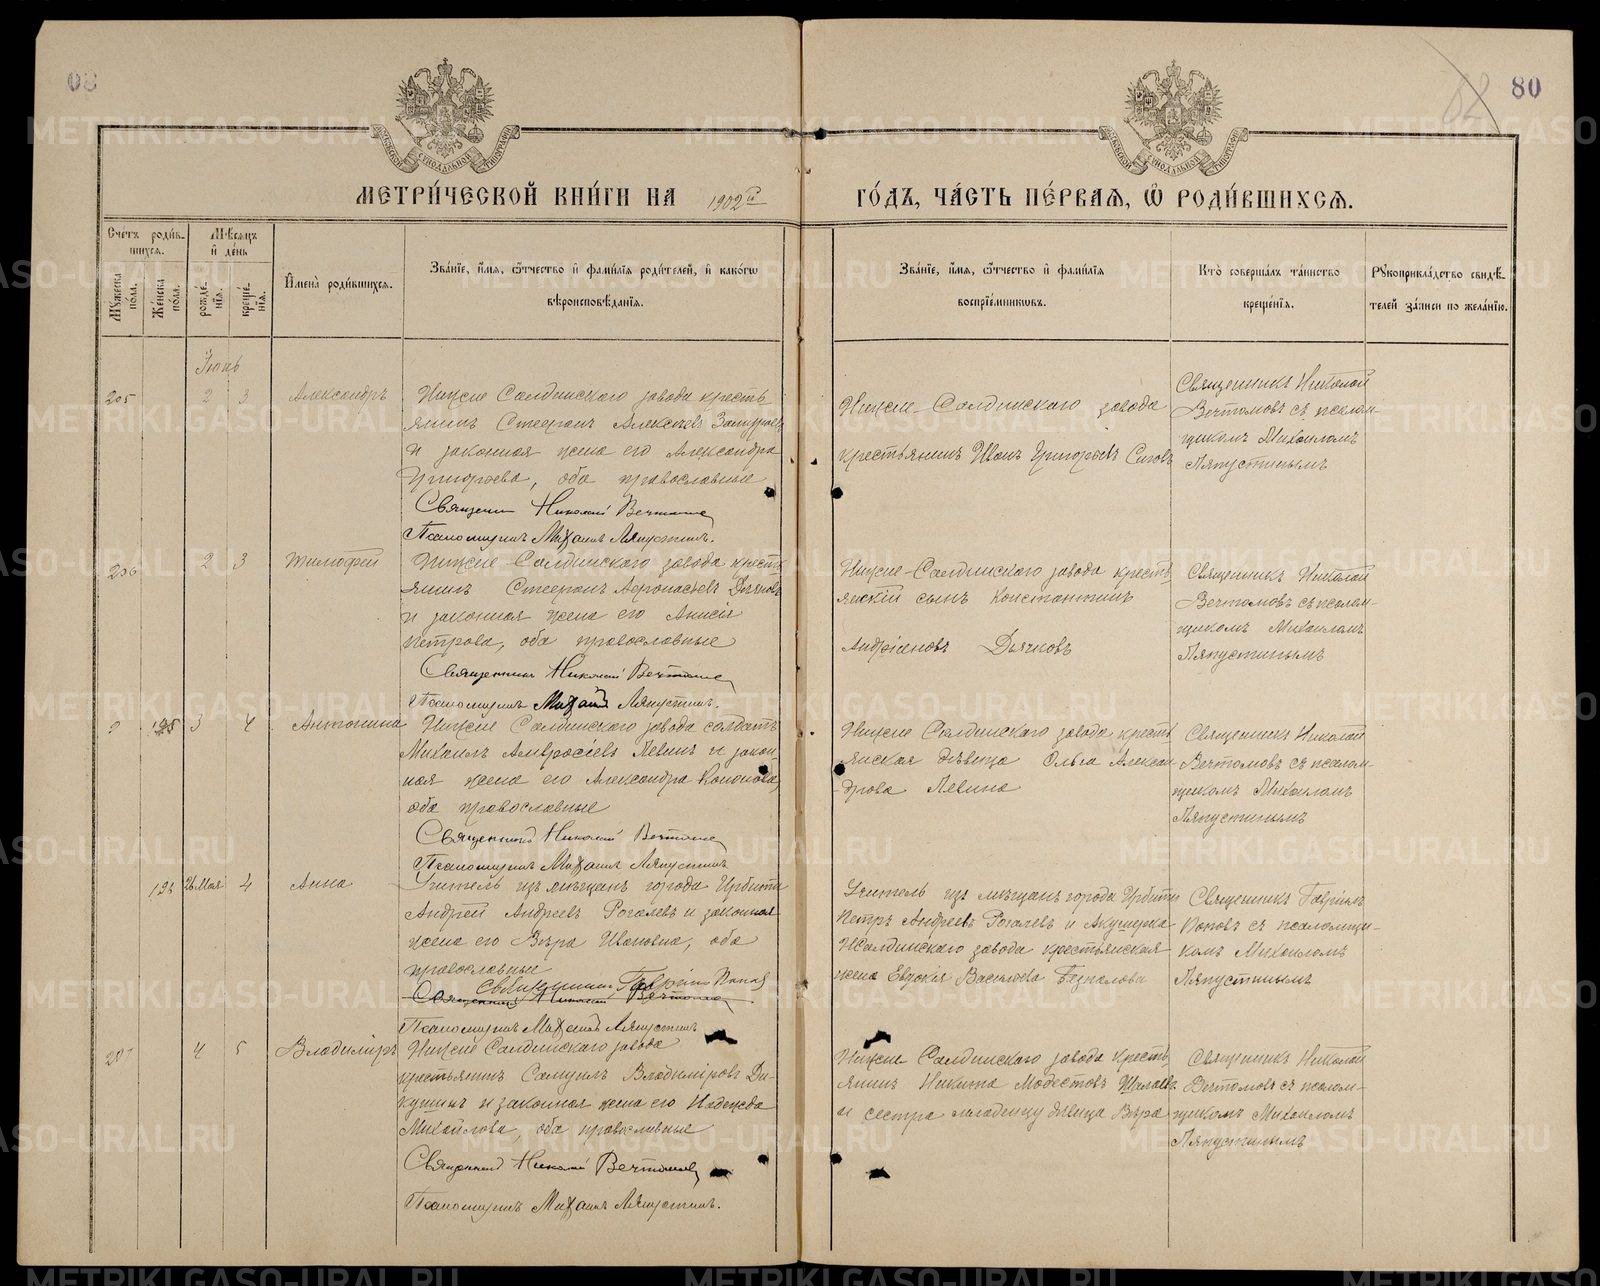 80
МЕТРИ́ЧЕСКОЙ КНИ́ГИ НА 1902й
ГО́ДЪ, ЧА́СТЬ ПЕ́РВАѦ, Ѡ҆ РОДИ́ВШИХСѦ.
Сче́тъ роди́в-
шихсѧ.
Мѣ́сѧцъ
и҆ де́нь
Мꙋ́жеска по́ла.
Же́нска по́ла.
рожде́-
нїѧ.
креще́-
нїѧ.
И҆мена̀ роди́вшихсѧ.
Зва́нїе, и҆́мѧ, ѻ҆́тчество и҆ фами́лїѧ роди́телей, и҆ како́гѡ
вѣроисповѣ́данїѧ.
Зва́нїе, и҆́мѧ, ѻ҆́тчество и҆ фами́лїѧ
воспрїе́мникѡвъ.
Кто̀ соверша́лъ та́инство
креще́нїѧ.
Рꙋкоприкла́дство свидѣ́-
телей за́писи по жела́нїю.
Іюнь
205
2 3
Александръ
Нижне Салдинскаго завода кресть
янинъ Стефанъ Алексѣевъ
и законная жена его Александра
Григорьева, оба православные
Священн Николай Вечтомов
Псаломщикъ Михаилъ Ляпустинъ.
Нижне-Салдинскаго завода
крестьянинъ Иванъ Григорьевъ Сиговъ
Священникъ Николай
Вечтомовъ съ псалом-
щикомъ Михаиломъ
Ляпустинымъ
206
2 3
Тимофей
Нижне Салдинскаго завода кресть
янинъ Стефанъ Афонасьевъ Дьячковъ
и законная жена его Анисія
Петрова, оба православные
Священникъ Николай Вечтомов
Псаломщикъ Михаил Ляпустинъ.
Нижне-Салдинскаго завода кресть
янскій сынъ Константинъ
Андріеновъ Дьячковъ
Священникъ Николай
Вечтомовъ съ псалом-
щикомъ Михаиломъ
Ляпустинымъ
3 4
Антонина
Нижне Салдинскаго завода солдатъ
Михаилъ Амвросіевъ Левинъ и закон-
ная жена его Александра Кононова,
оба православные
Священник Николай Вечтомов
Псаломщикъ Михаилъ Ляпустинъ
Нижне Салдинскаго завода кресть
янская дѣвица Ольга Алексан
дрова Левина
Священникъ Николай
Вечтомовъ съ псалом-
щикомъ Михаиломъ
Ляпустинымъ
26 Мая 4
Анна
Учитель изъ мѣщанъ города Ирбити
Андрей Андреевъ Рогалевъ и законная
жена его Вѣра Ивановна, оба
православные
Священникъ Гавріилъ Попов
Священник Николай Вечтомов
Псаломщикъ Михаилъ Ляпустинъ
Учитель изъ мѣщанъ города Ирбити
Петръ Андреевъ Рогалевъ и Акушерка
Н Салдинскаго завода крестьянская
жена Евдокія Васильева
Священникъ Гавріилъ
Поповъ съ псаломщи-
комъ Михаиломъ
Ляпустинымъ
207
4 5
Владиміръ
Нижне Салдинскаго завода
крестьянинъ Самуилъ Владиміровъ Ди-
кушинъ и законная жена его Надежда
Михайлова, оба православные
Священник Николай Вечтомов
Псаломщикъ Михаилъ Ляпустинъ.
Нижне Салдинскаго завода кресть
янинъ Никита Модестовъ Шалаевъ
и сестра младенцу дѣвица Вѣра
Священникъ Николай
Вечтомовъ съ псалом-
щикомъ Михаиломъ
Ляпустинымъ
METRIKI.GASO-URAL.RU